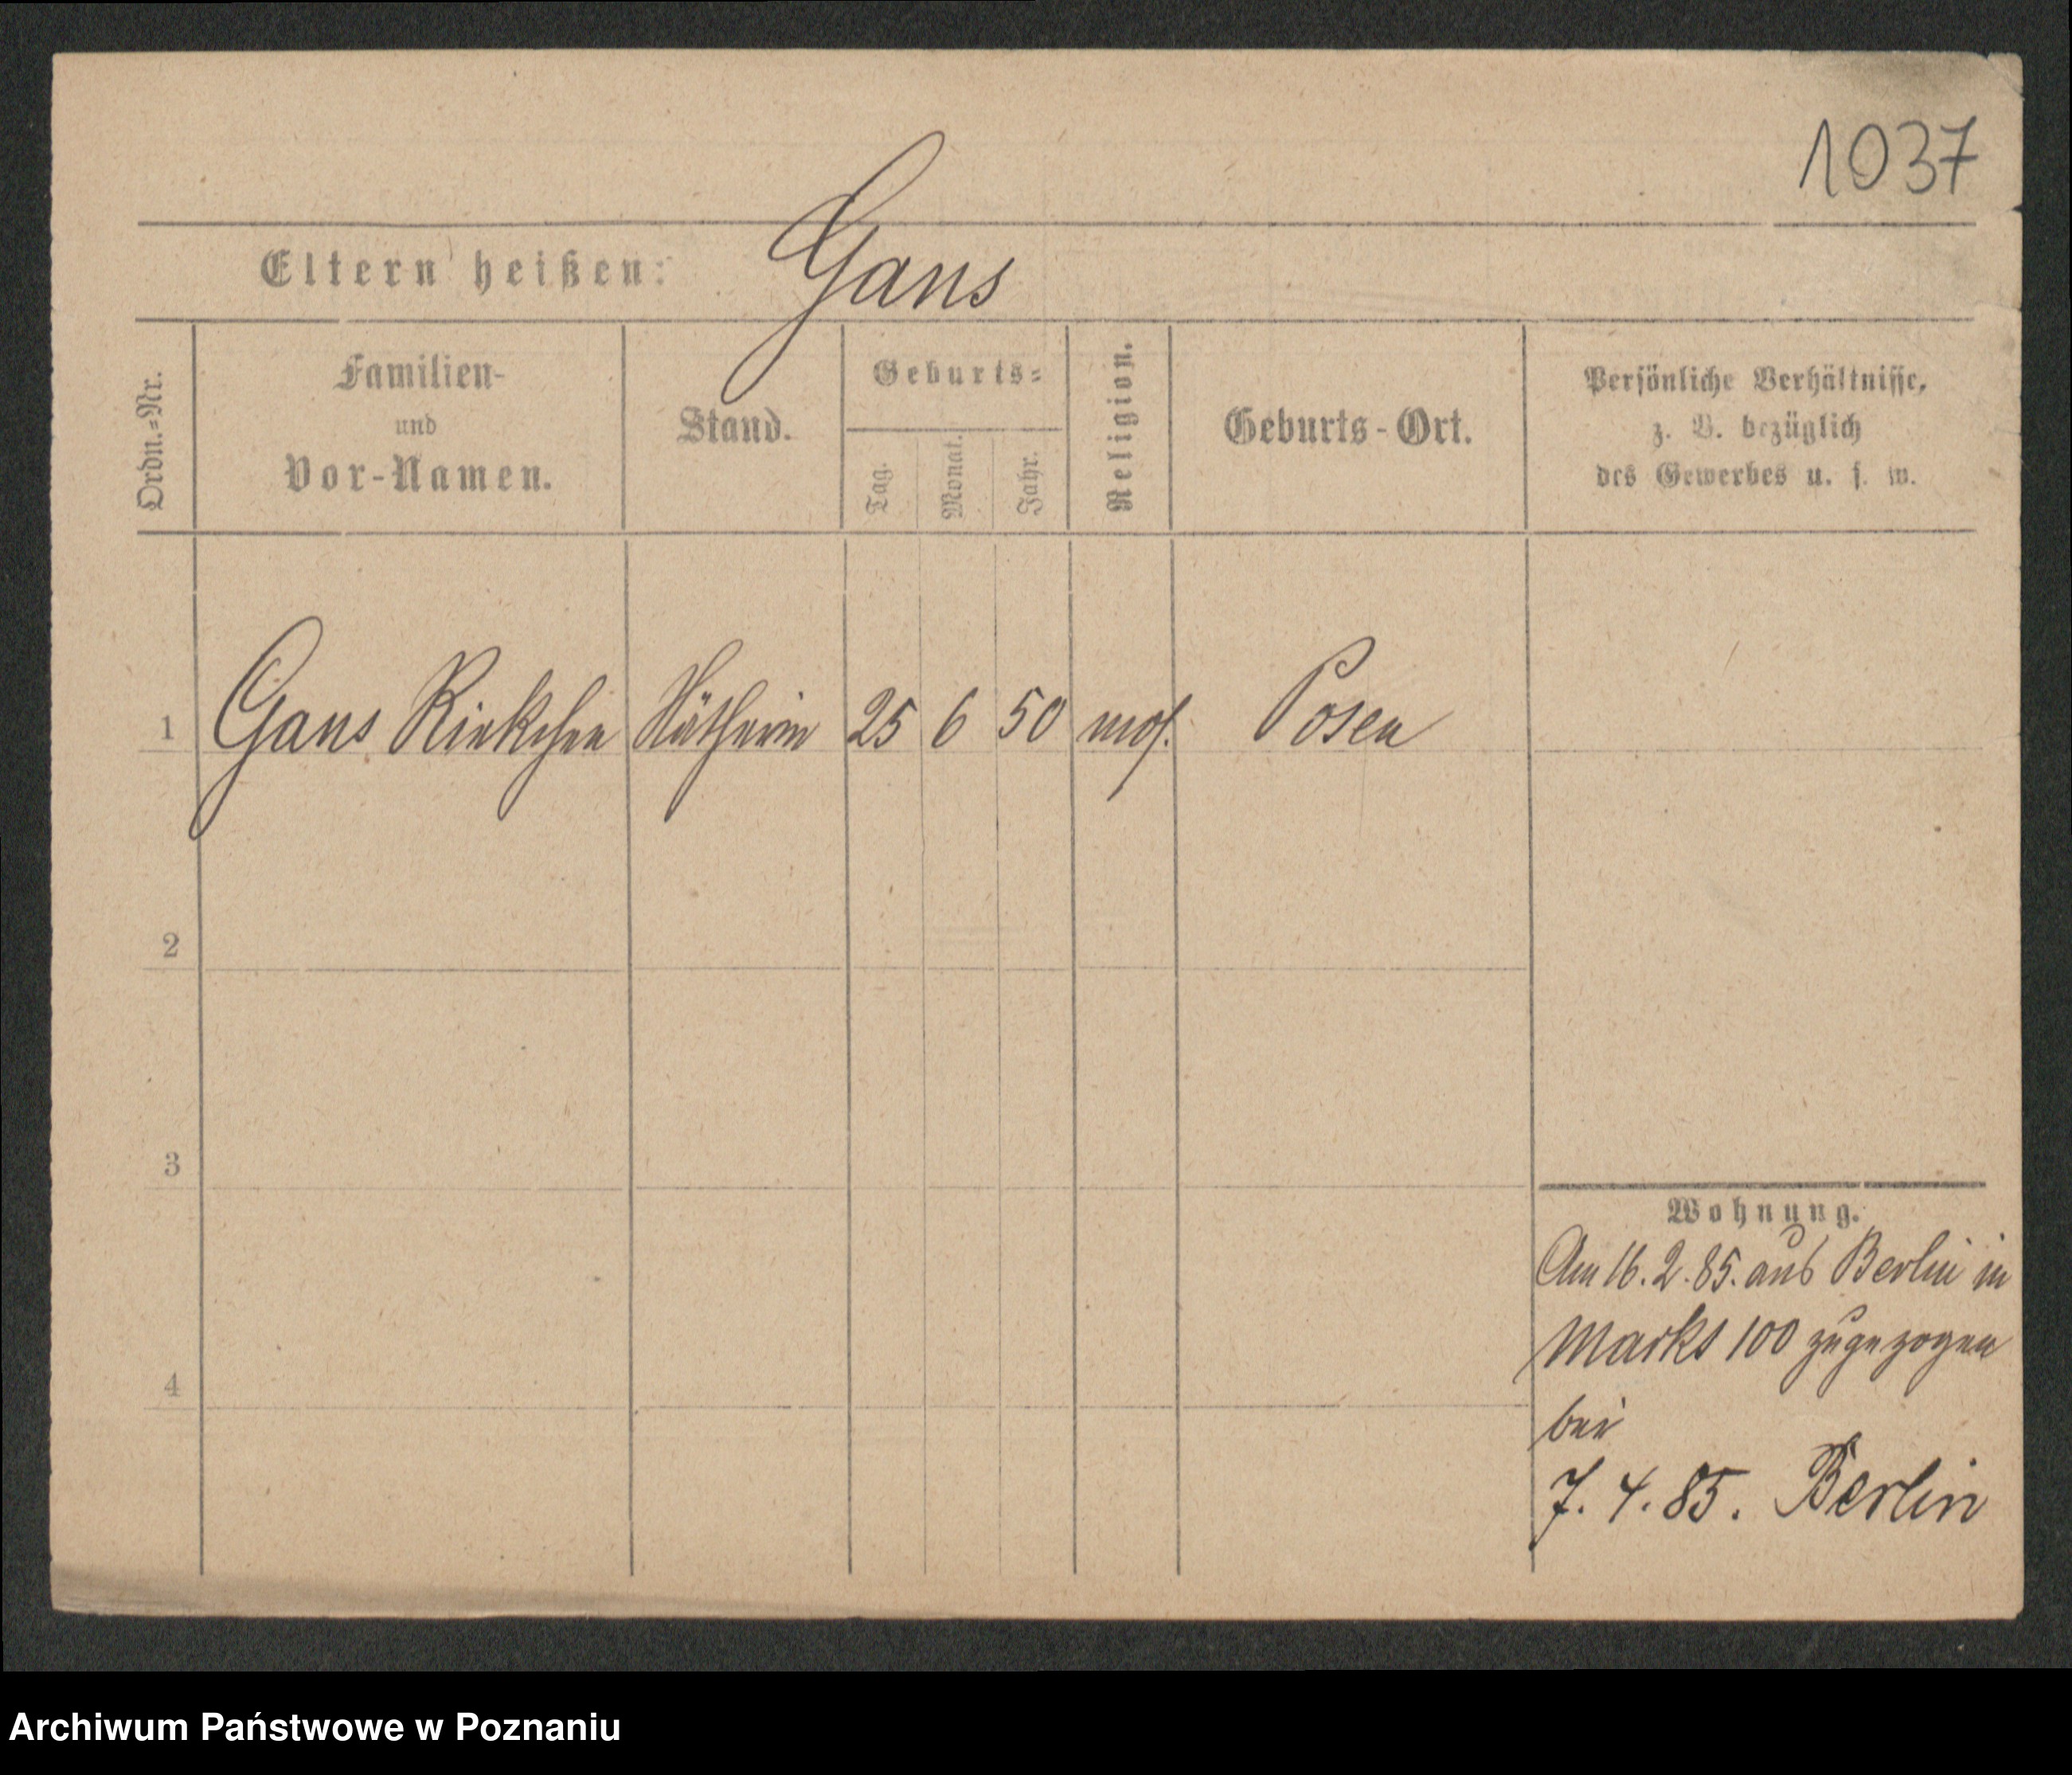 1037
Eltern heißen: Gans
Ordn.=Nr.
Familien-
und
Vor-Namen.
Stand.
Geburts=
Tag.
Monat.
Jahr.
Religion.
Geburts-Ort.
Persönliche Verhältnisse,
z. B. bezüglich
des Gewerbes u. s. w.
1 Gans Riekchen Näherin 25 6 50 mos. Posen
2
3
4
Wohnung.
Am 16.2.85. aus Berlin in
Markt 100 zugezogen
bei
7.4.85. Berlin
Archiwum Państwowe w Poznaniu